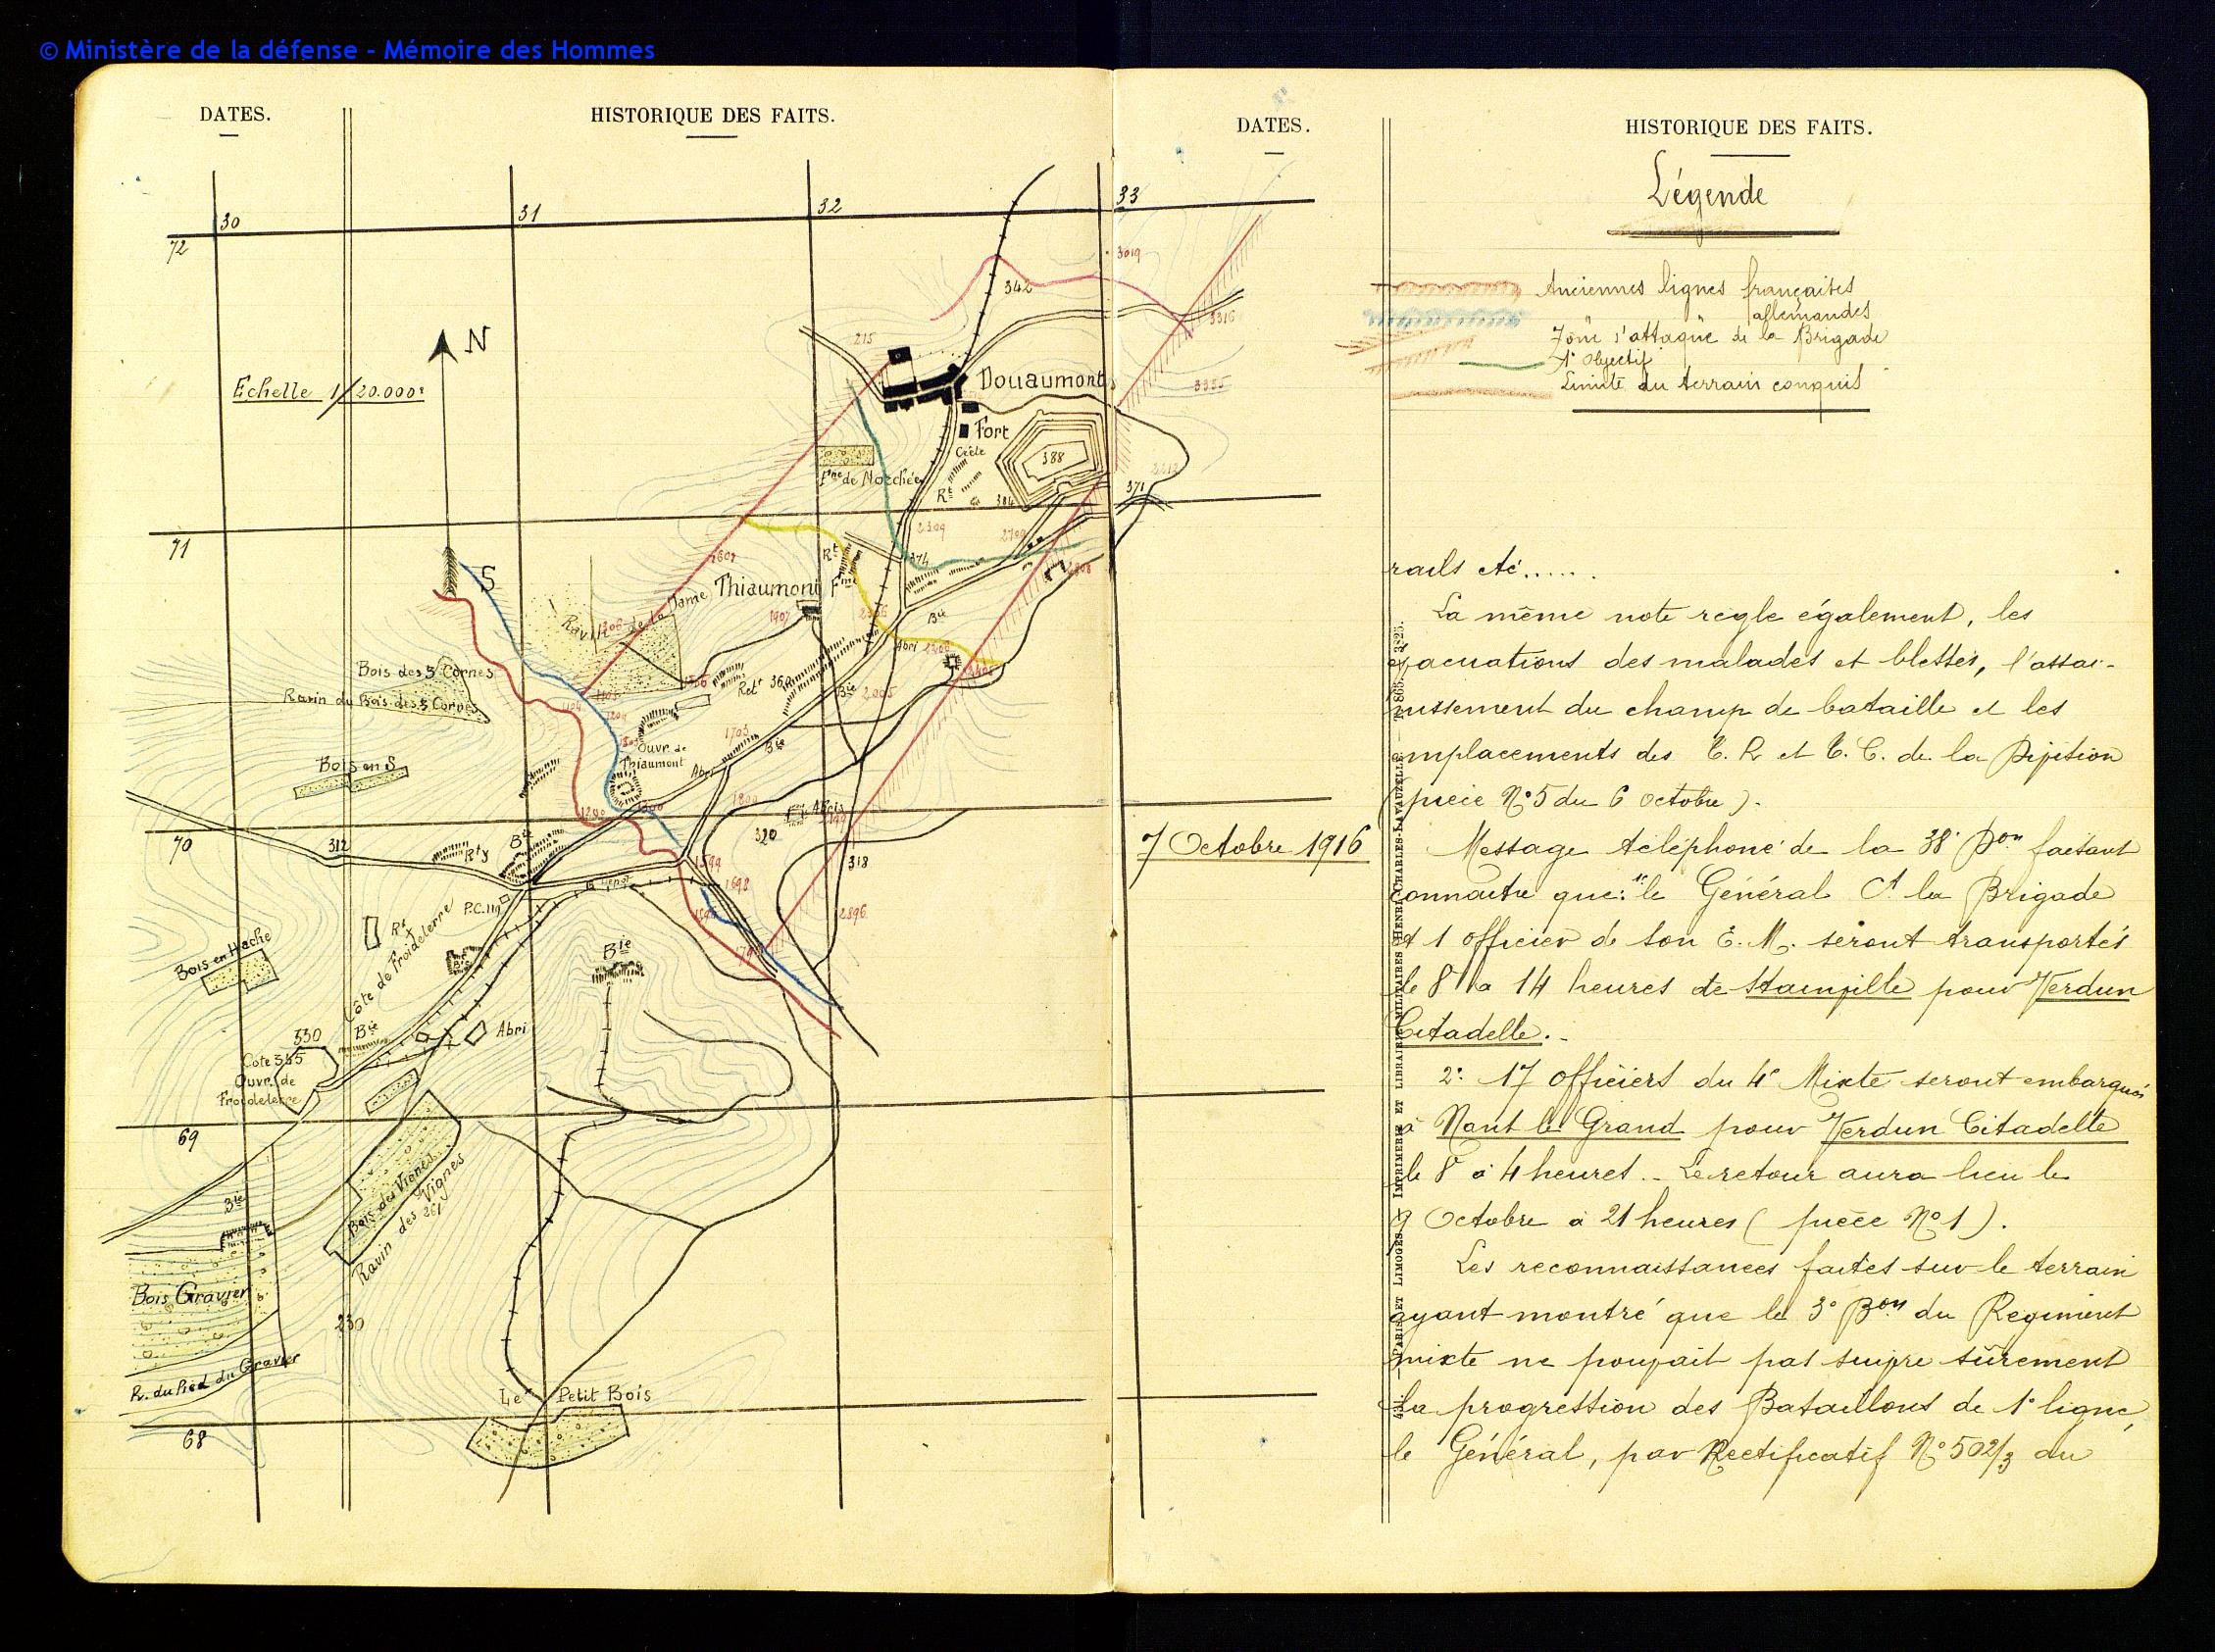 © Ministère de la défense - Mémoire des Hommes
DATES.
HISTORIQUE DES FAITS.
30
31
32
33
72
3019
342
N
3316
215
Echelle 1/20.000e
Douaumont
3355
Fort
Crête
388
Fme de Morchée
Rt
384
371
71
2309
2708
374
1607
Rt
S
Thiaumont Fme
Ravin de la Dame
1907
Bie
Abri
Bois des 3 Cornes
Ravin du Bois des 3 Cornes
Ret
Bie
Ouvr. de
Thiaumont
1703
Bie
Bois en S
Abri
Abris
320
70
312
Rts
Bie
318
1599
1698
P.C. 119
2896
Rt
Côte de Froideterre
Bois en Hache
Bie
Bie
330
Bie
Abri
Cote 345
Ouvr. de
Froideterre
69
Bois des Vignes
Ravin des Vignes
261
Bie
Bois Gravier
230
R. du Pied du Gravier
Le Petit Bois
68
DATES.
HISTORIQUE DES FAITS.
Légende
Anciennes lignes françaises
allemandes
Zone d'attaque de la Brigade
1e Objectif
Limite du terrain conquis
rails etc......
La même note règle également, les
évacuations des malades et blessés, l'assai-
nissement du champ de bataille et les
emplacements des T. R et T. C. de la Division
(pièce No 5 du 6 octobre).
7 Octobre 1916
Message téléphoné de la 38e Don faisant
connaitre que: 1e le Général Ct la Brigade
et 1 officier de son E. M. seront transportés
le 8 à 14 heures de Stainville pour Verdun
Citadelle.-
2e. 17 officiers du 4e Mixte seront embarqués
à Nant le Grand pour Verdun Citadelle
le 8 à 4 heures.- Le retour aura lieu le
9 Octobre à 21 heures (pièce No 1).
Les reconnaissances faites sur le terrain
ayant montré que le 3e Bon du Régiment
mixte ne pouvait pas suivre sûrement
la progression des Bataillons de 1e ligne,
le Général, par Rectificatif No 502/3 du